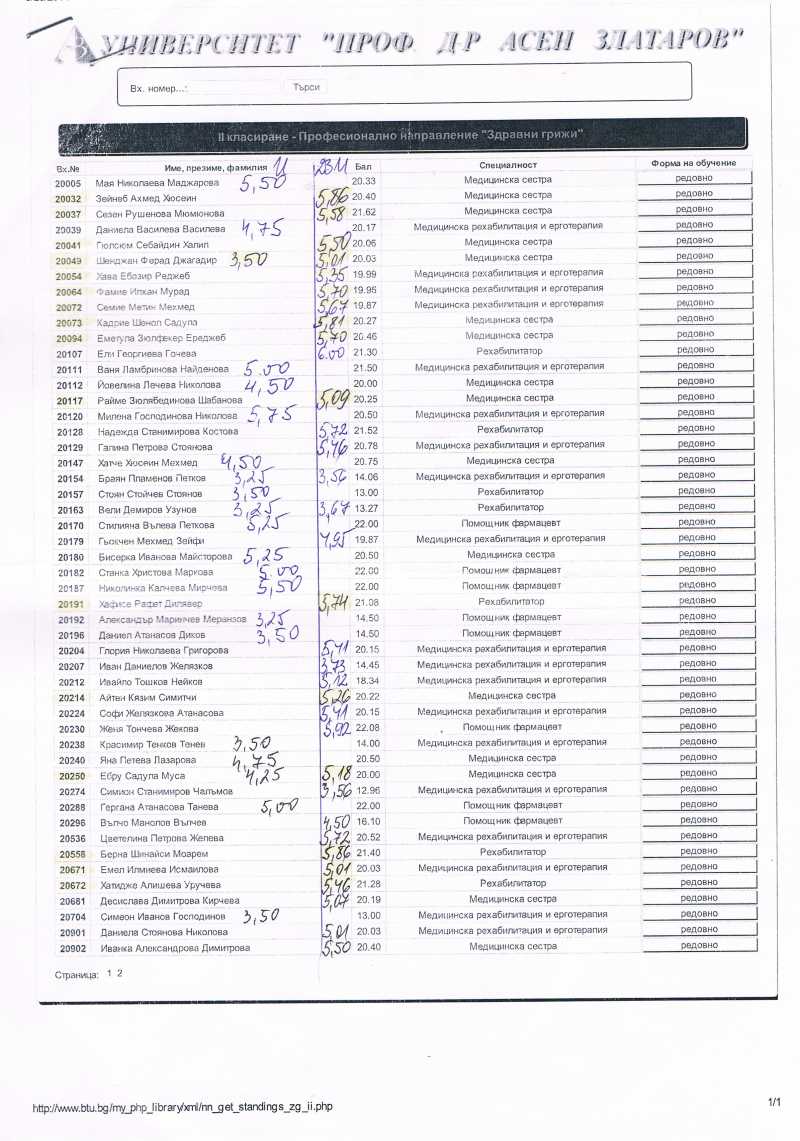 УНИВЕРСИТЕТ "ПРОФ Д-Р АСЕН ЗЛАТАРОВ"
Вх. номер...: Търси
II класиране - Професионално направление "Здравни грижи"
Вх.№ Име, презиме, фамилия Бал Специалност Форма на обучение
20005 Мая Николаева Маджарова 5,50 20.33 Медицинска сестра редовно
20032 Зейнеб Ахмед Хюсеин 5,86 20.40 Медицинска сестра редовно
20037 Сезен Рушенова Мюмюнова 5,58 21.62 Медицинска сестра редовно
20039 Даниела Василева Василева 4,75 20.17 Медицинска рехабилитация и ерготерапия редовно
20041 Гюлсюм Себайдин Халил 5,50 20.06 Медицинска сестра редовно
20049 Шенджан Ферад Джагадир 3,50 5,01 20.03 Медицинска сестра редовно
20054 Хава Ебозир Реджеб 5,35 19.99 Медицинска рехабилитация и ерготерапия редовно
20064 Фамие Илхан Мурад 5,70 19.95 Медицинска рехабилитация и ерготерапия редовно
20072 Семие Метин Мехмед 5,67 19.87 Медицинска рехабилитация и ерготерапия редовно
20073 Кадрие Шенол Садула 5,81 20.27 Медицинска сестра редовно
20094 Емегула Зюлфекер Ереджеб 5,70 20.46 Медицинска сестра редовно
20107 Ели Георгиева Гочева 6.00 21.30 Рехабилитатор редовно
20111 Ваня Ламбринова Найденова 5.00 21.50 Медицинска рехабилитация и ерготерапия редовно
20112 Йовелина Лечева Николова 4,50 20.00 Медицинска сестра редовно
20117 Райме Зюлябединова Шабанова 5,09 20,25 Медицинска сестра редовно
20120 Милена Господинова Николова 5,75 20.50 Медицинска рехабилитация и ерготерапия редовно
20128 Надежда Станимирова Костова 5,72 21.52 Рехабилитатор редовно
20129 Галина Петрова Стоянова 5,46 20.78 Медицинска рехабилитация и ерготерапия редовно
20147 Хатче Хюсеин Мехмед 4,50 20.75 Медицинска сестра редовно
20154 Браян Пламенов Петков 3,25 3,56 14.06 Медицинска рехабилитация и ерготерапия редовно
20157 Стоян Стойчев Стоянов 3,50 13.00 Рехабилитатор редовно
20163 Вели Демиров Узунов 3,25 3,67 13.27 Рехабилитатор редовно
20170 Стилияна Вълева Петкова 5,25 22.00 Помощник фармацевт редовно
20179 Гьокчен Мехмед Зейфи 4,95 19,87 Медицинска рехабилитация и ерготерапия редовно
20180 Бисерка Иванова Майсторова 5,25 20.50 Медицинска сестра редовно
20182 Станка Христова Маркова 5.00 22.00 Помощник фармацевт редовно
20187 Николинка Калчева Мирчева 5,50 22.00 Помощник фармацевт редовно
20191 Хафисе Рафет Дилявер 5,74 21.08 Рехабилитатор редовно
20192 Александър Маринчев Меранзов 3,25 14.50 Помощник фармацевт редовно
20196 Даниел Атанасов Диков 3,50 14.50 Помощник фармацевт редовно
20204 Глория Николаева Григорова 5,41 20.15 Медицинска рехабилитация и ерготерапия редовно
20207 Иван Даниелов Желязков 3,73 14,45 Медицинска рехабилитация и ерготерапия редовно
20212 Ивайло Тошков Нейков 5,12 18.34 Медицинска рехабилитация и ерготерапия редовно
20214 Айтен Кязим Симитчи 5,26 20.22 Медицинска сестра редовно
20224 Софи Желязкова Атанасова 5,41 20.15 Медицинска рехабилитация и ерготерапия редовно
20230 Женя Тончева Жекова 5,92 22.08 Помощник фармацевт редовно
20238 Красимир Тенков Тенев 3,50 14.00 Медицинска рехабилитация и ерготерапия редовно
20240 Яна Петева Лазарова 4,75 20.50 Медицинска сестра редовно
20250 Ебру Садула Муса 4,25 5,18 20.00 Медицинска сестра редовно
20274 Симион Станимиров Чалъмов 3,56 12.96 Медицинска рехабилитация и ерготерапия редовно
20288 Гергана Атанасова Танева 5,00 22.00 Помощник фармацевт редовно
20296 Вълчо Манолов Вълчев 4,50 16.10 Помощник фармацевт редовно
20536 Цветелина Петрова Желева 5,72 20.52 Медицинска рехабилитация и ерготерапия редовно
20558 Берна Шинайси Моарем 5,86 21.40 Рехабилитатор редовно
20671 Емел Илмиева Исмаилова 5,01 20.03 Медицинска рехабилитация и ерготерапия редовно
20672 Хатидже Алишева Уручева 5,46 21.28 Рехабилитатор редовно
20681 Десислава Димитрова Кирчева 5,07 20.19 Медицинска сестра редовно
20704 Симеон Иванов Господинов 3,50 13.00 Медицинска рехабилитация и ерготерапия редовно
20901 Даниела Стоянова Николова 5,01 20.03 Медицинска рехабилитация и ерготерапия редовно
20902 Иванка Александрова Димитрова 5,50 20.40 Медицинска сестра редовно
Страница: 1 2
http://www.btu.bg/my_php_library/xml/nn_get_standings_zg_ii.php 1/1